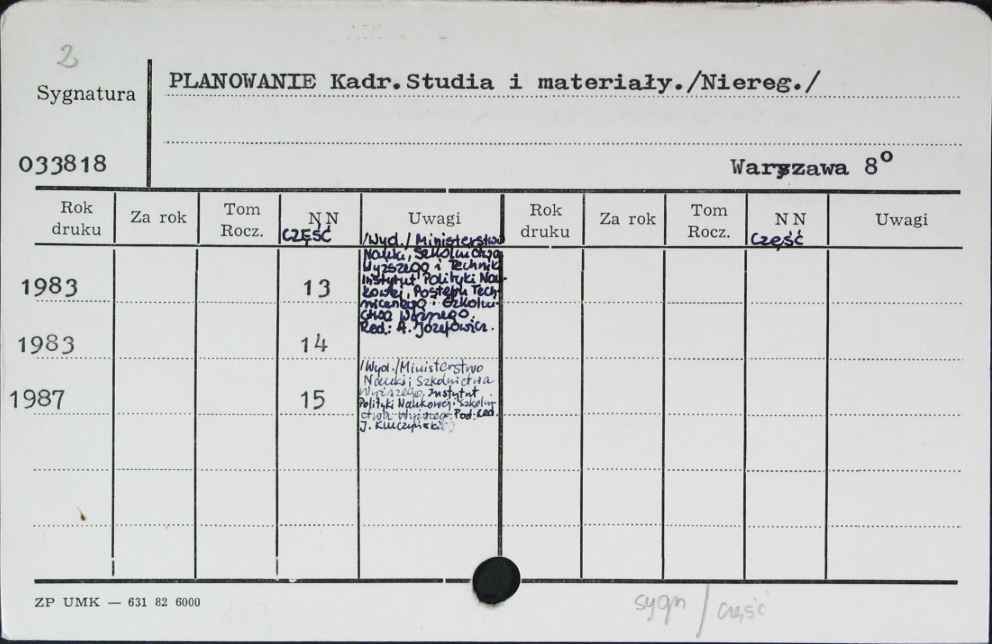 2
Sygnatura
PLANOWANIE Kadr.Studia i materiały./Niereg./
033818
Warszawa 8°
Rok druku Za rok Tom Rocz. NN CZĘŚĆ Uwagi Rok druku Za rok Tom Rocz. NN CZĘŚĆ Uwagi
/Wyd./ Ministerstwo
Nauki, Szkolnictwa
Wyższego i Techniki
Instytut Polityki Nau-
kowej, Postępu Tech-
nicznego i Szkolni-
ctwa Wyższego.
Red.: A. Józefowicz.
1983 13
1983 14
1987 15
/Wyd./Ministerstwo
Nauki i Szkolnictwa
Wyższego, Instytut
Polityki Naukowej i Szkolni-
ctwa Wyższego. Pod. red.
J. Kluczyński
ZP UMK — 631 82 6000
sygn / część